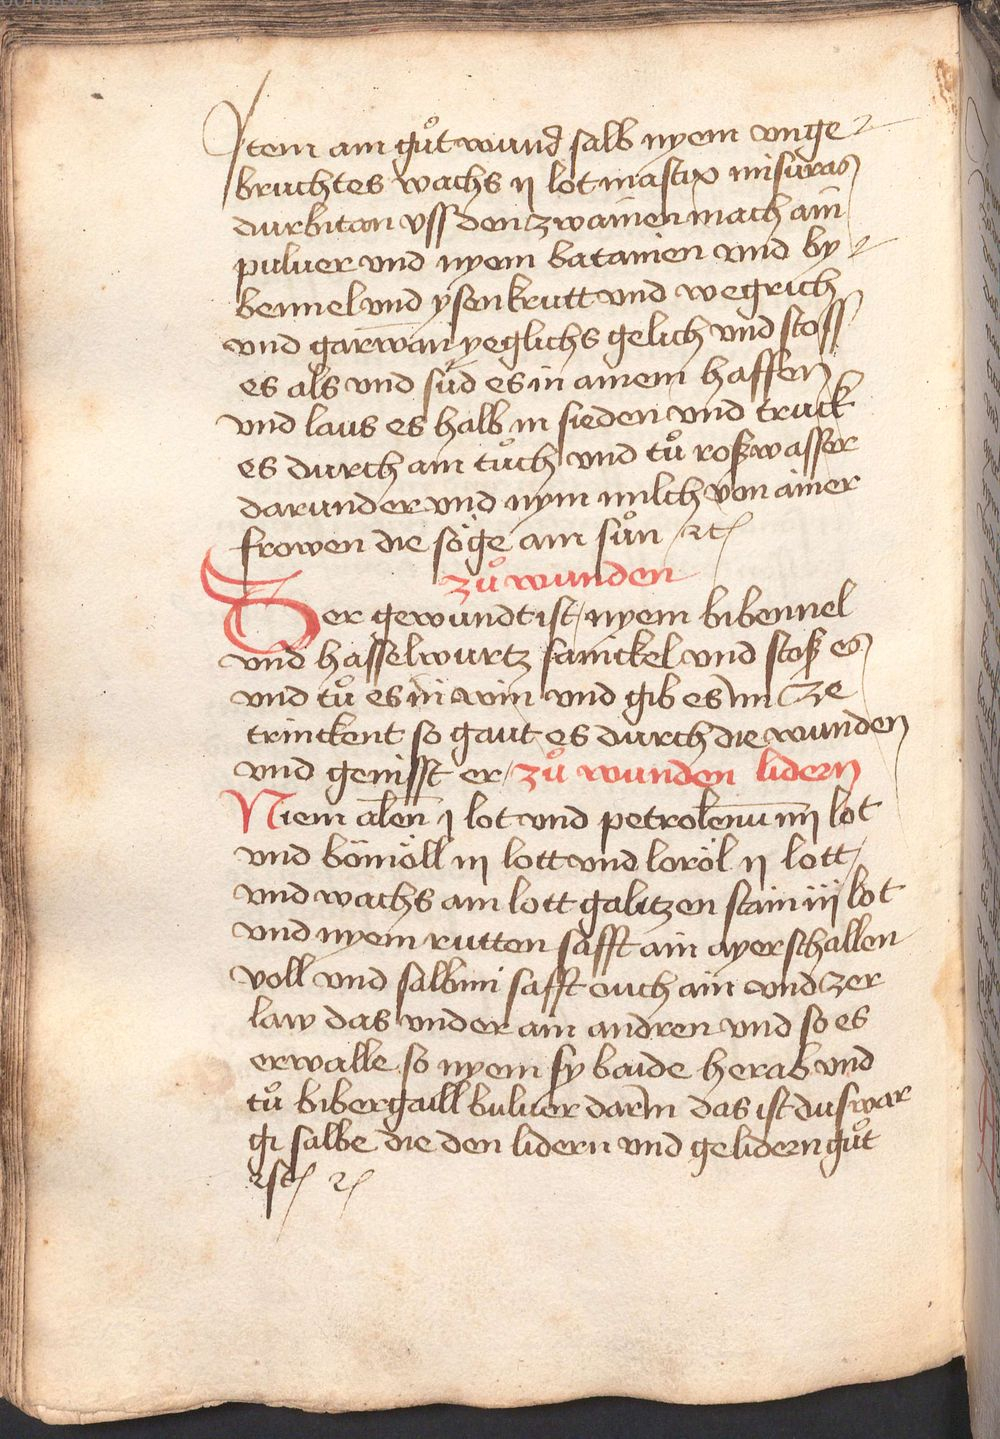 Item ain gůt wund salb nyem vnge
bruchtes wachs ij lot mastix misuras
durbitan vss den zwainen mach ain
puluer vnd nyem batanien vnd by
bennel vnd ysenkrutt vnd wegrich
vnd garwan yeglichs gelich vnd stoss
es als vnd sůd es in ainem haffen
vnd laus es halb in sieden vnd truck
es durch ain tůch vnd tů roßwasser
darunder vnd nym milch von ainer
frowen die söge ain sůn ꝛc
zů wunden
Der gewundt ist nyem bibennel
vnd hasselwurtz sanickel vnd stoß es
vnd tů es in win vnd gib es im ze
trinckent so gaut es durch die wunden
vnd genisst er zů wunden lidern
Niem alen̄ j lot vnd petrolen̄um iiij lot
vnd bömöll iij lott vnd loröl ij lott
vnd wachs ain lott galitzen stain iij lot
vnd nyem rutten safft ain ayerschallen
voll vnd salbini safft ouch ain vnd zer
law das vnder ain andren vnd so es
erwalle so nyem sy baide herab vnd
tů bibergaill buluer darin das ist du swar
gi salbe die den lidern vnd gelidern gůt
ist ꝛc